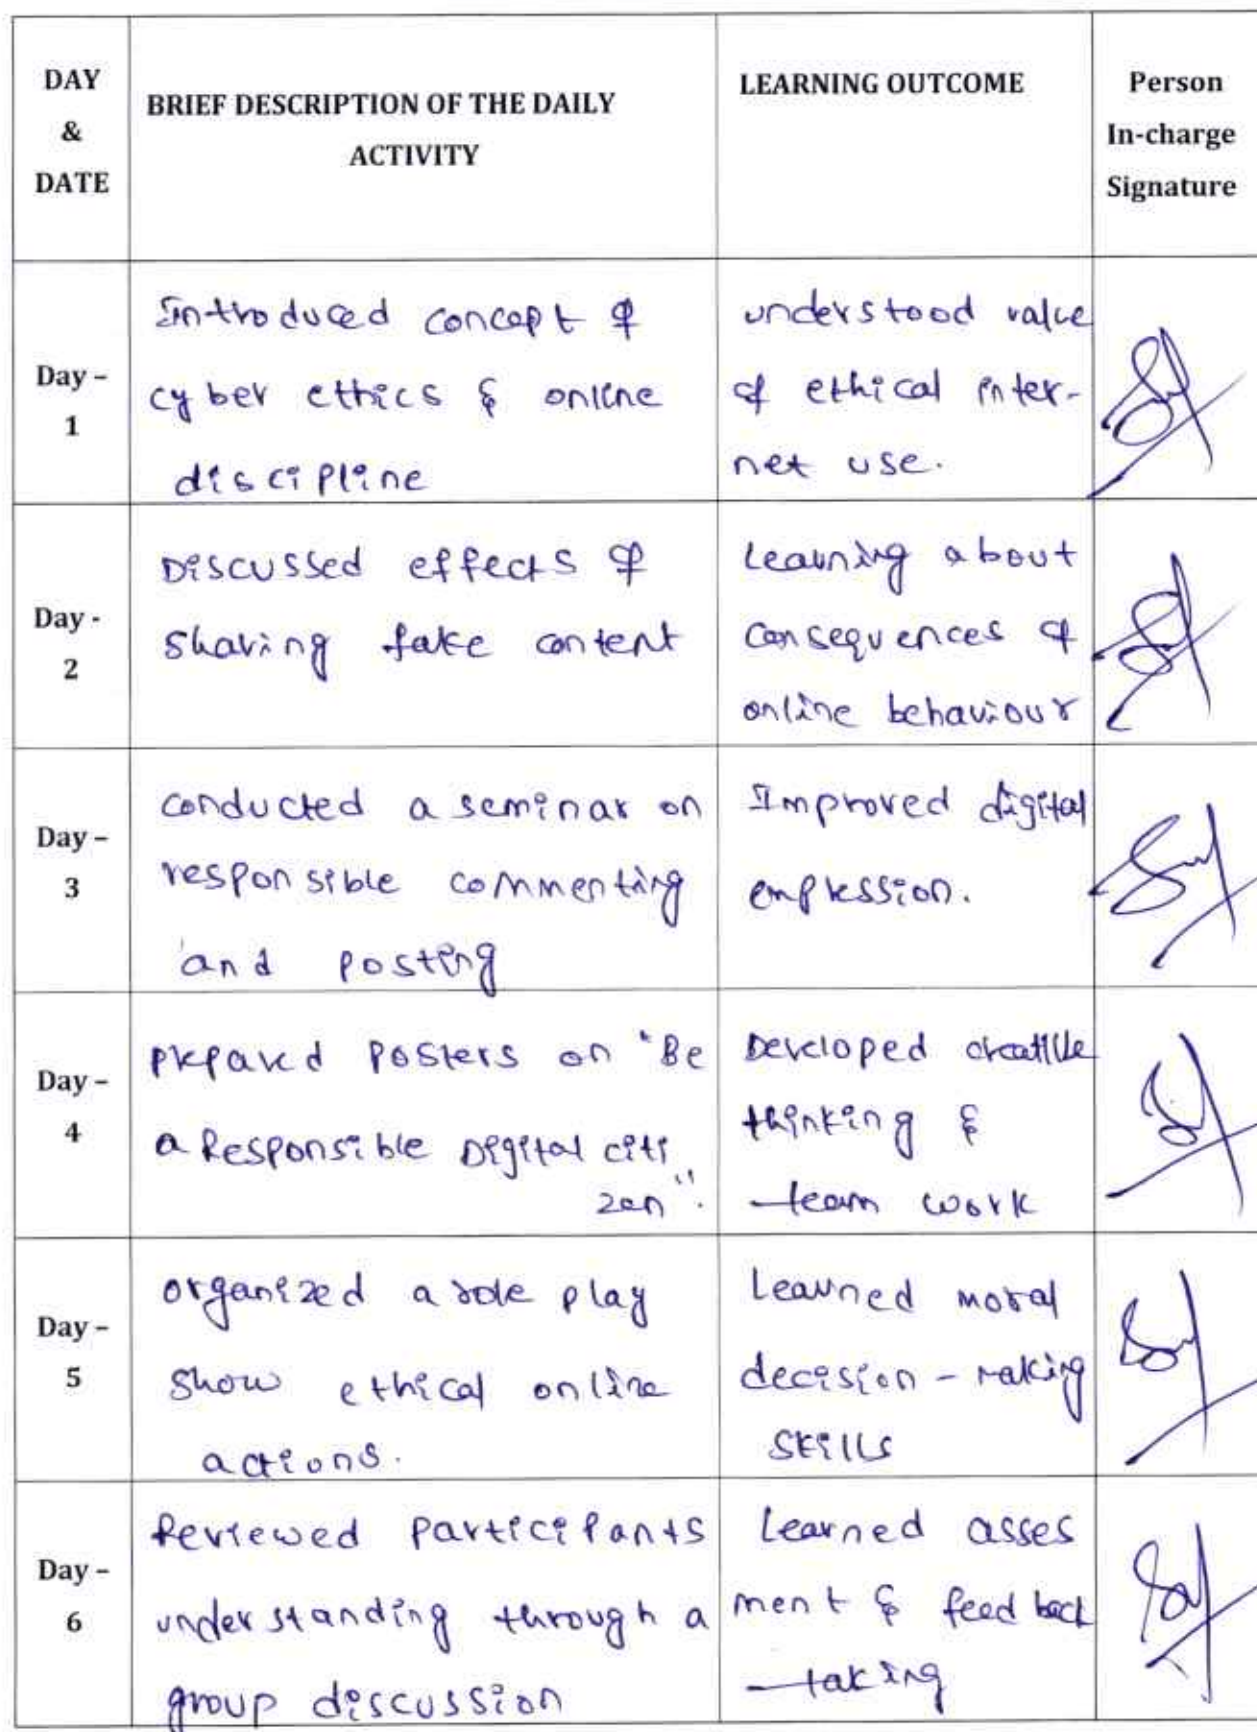 DAY & DATE
BRIEF DESCRIPTION OF THE DAILY
ACTIVITY
LEARNING OUTCOME
Person
In-charge
Signature
Day –
1
Introduced concept of
cyber ethics & online
discipline
understood value
of ethical inter-
net use.
Day -
2
Discussed effects of
sharing fake content
Learning about
consequences of
online behaviour
Day –
3
conducted a seminar on
responsible commenting
and posting
Improved digital
expression.
Day –
4
prepared posters on "Be
a Responsible Digital citi
zen".
Developed creative
thinking &
team work
Day –
5
organized a role play
show ethical online
actions.
Learned moral
decision - making
skills
Day –
6
Reviewed participants
understanding through a
group discussion
Learned asses
ment & feed back
taking